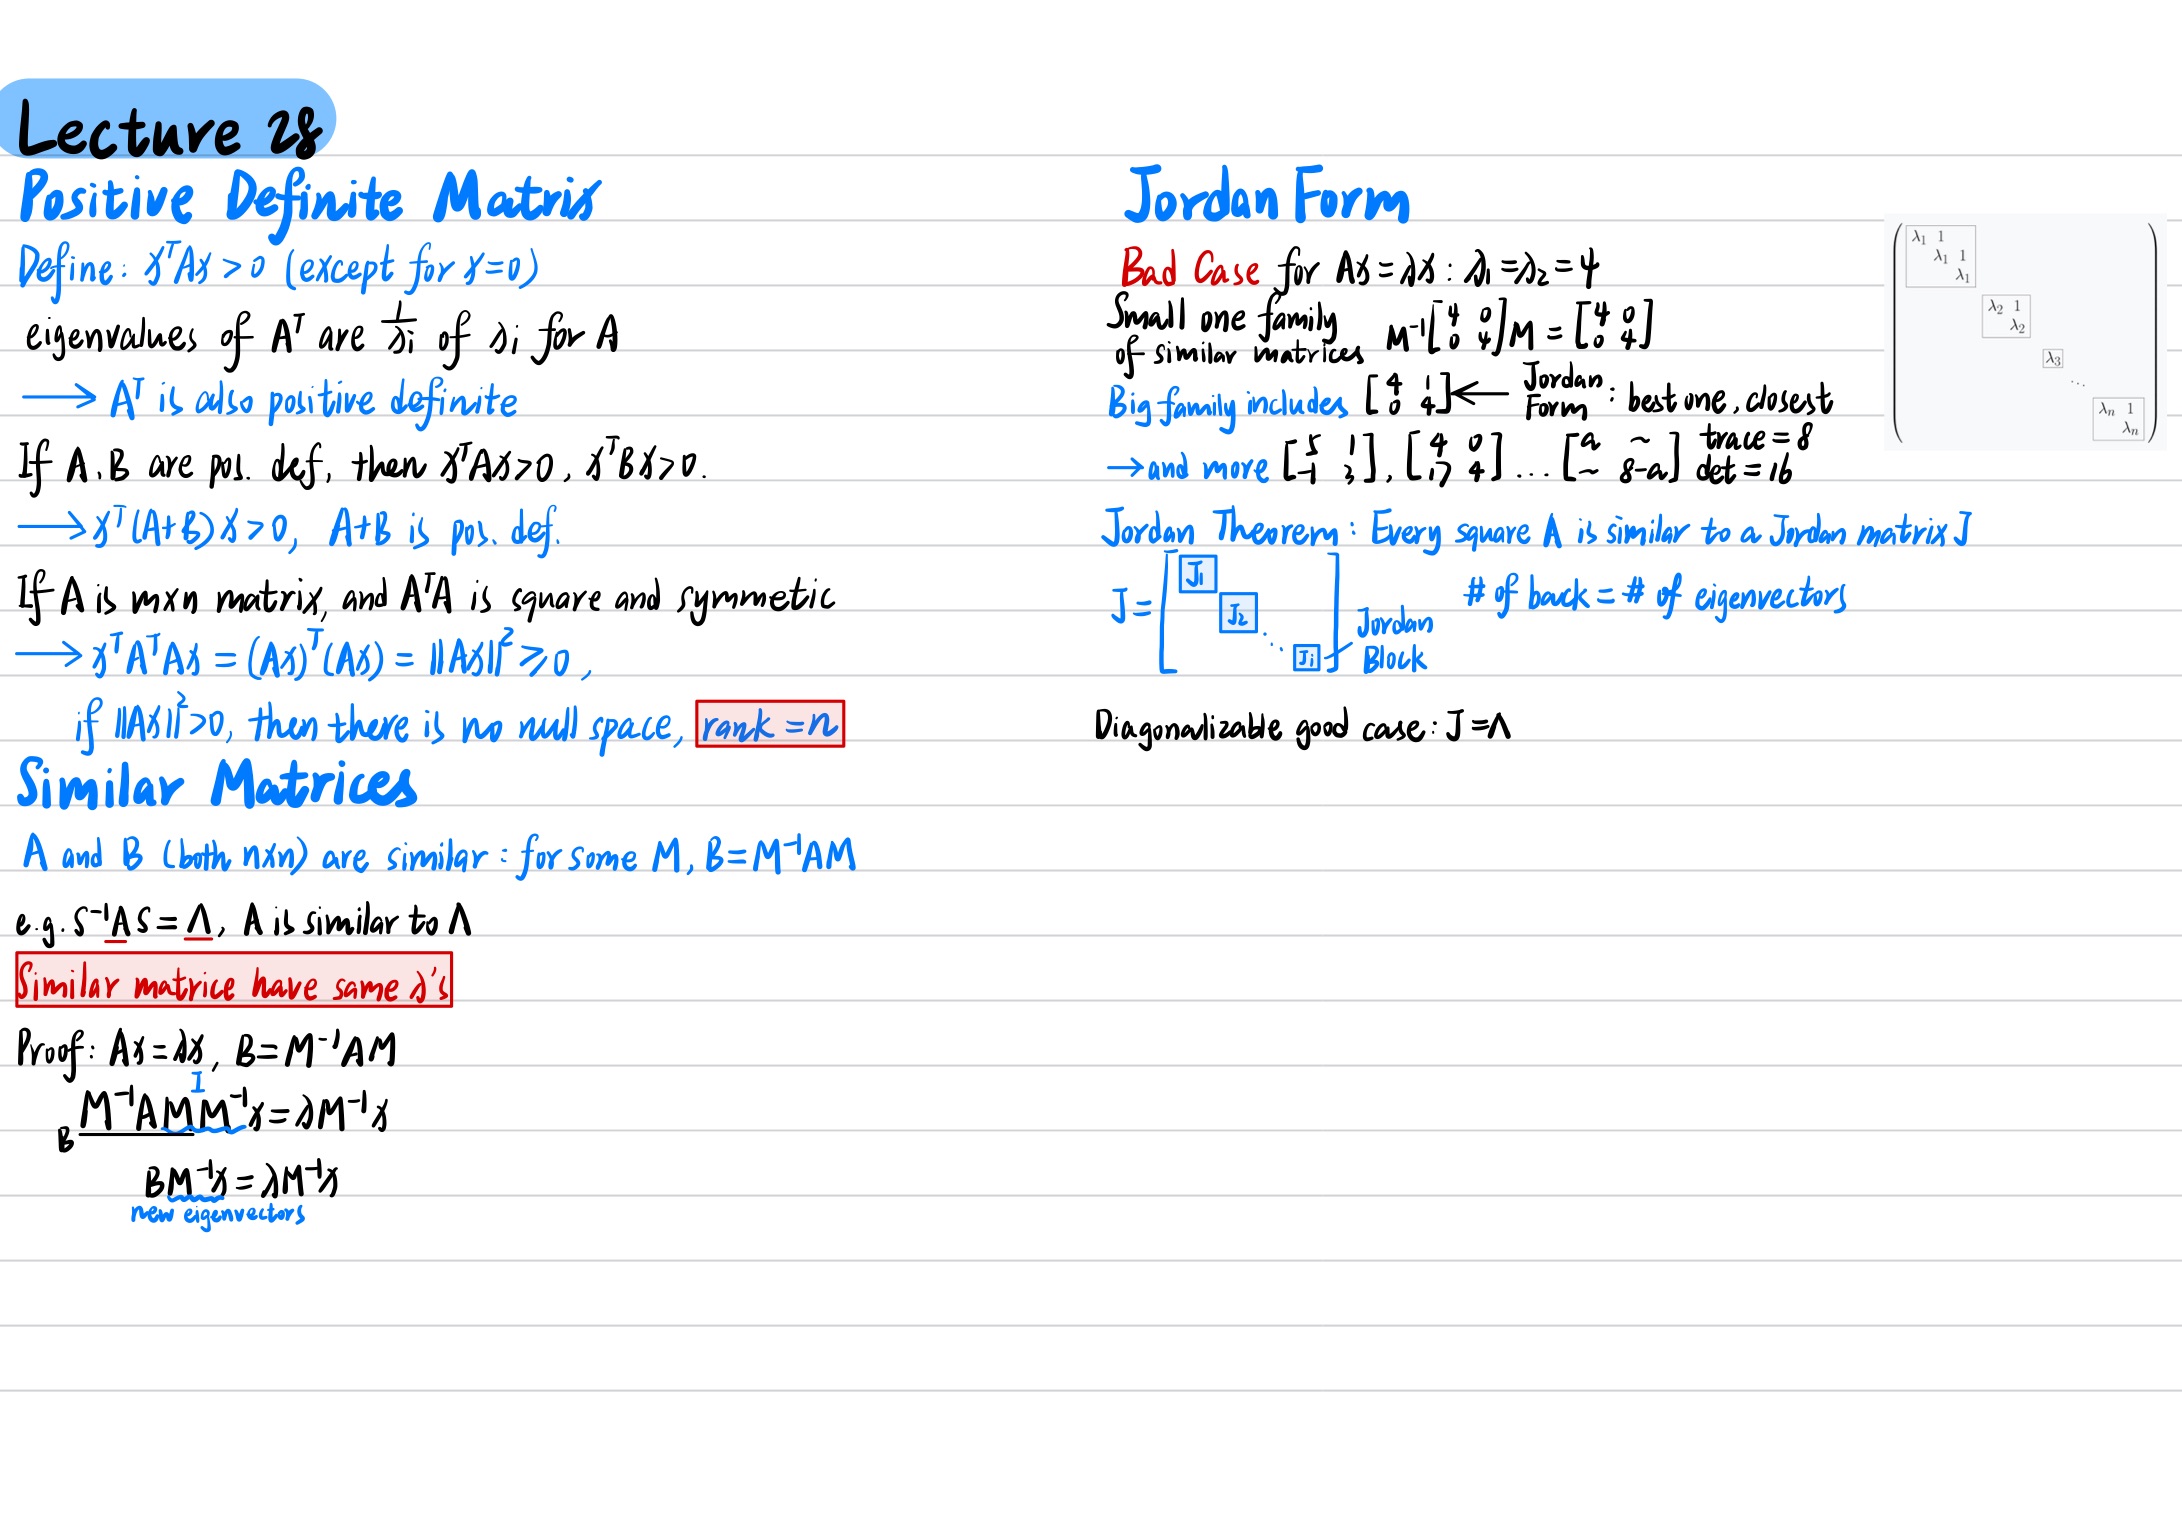 Lecture 28
Positive Definite Matrix
Define: xᵀAx > 0 (except for x=0)
eigenvalues of Aᵀ are 1/λi of λi for A
⟶ Aᵀ is also positive definite
If A, B are pos. def, then xᵀAx>0, xᵀBx>0.
⟶ xᵀ(A+B)x>0, A+B is pos. def.
If A is m×n matrix, and AᵀA is square and symmetic
⟶ xᵀAᵀAx = (Ax)ᵀ(Ax) = ||Ax||² ⩾ 0,
if ||Ax||²>0, then there is no null space, rank = n
Similar Matrices
A and B (both n×n) are similar: for some M, B=M⁻¹AM
e.g. S⁻¹AS = Λ, A is similar to Λ
Similar matrice have same λ's
Proof: Ax=λx, B=M⁻¹AM
I
M⁻¹AMM⁻¹x=λM⁻¹x
B
BM⁻¹x=λM⁻¹x
new eigenvectors
Jordan Form
Bad Case for Ax=λx: λ₁=λ₂=4
Small one family
of similar matrices M⁻¹[4 0; 0 4]M = [4 0; 0 4]
Big family includes [4 1; 0 4] ⟵ Jordan Form: best one, closest
→ and more [5 1; -1 3], [4 0; 17 4] ... [a ~; ~ 8-a] trace=8
det=16
Jordan Theorem: Every square A is similar to a Jordan matrix J
J = [J₁ J₂ ⋱ Ji] Jordan Block
# of back = # of eigenvectors
Diagonalizable good case: J=Λ
λ₁ 1
λ₁ 1
λ₁
λ₂ 1
λ₂
λ₃
⋱
λₙ 1
λₙ